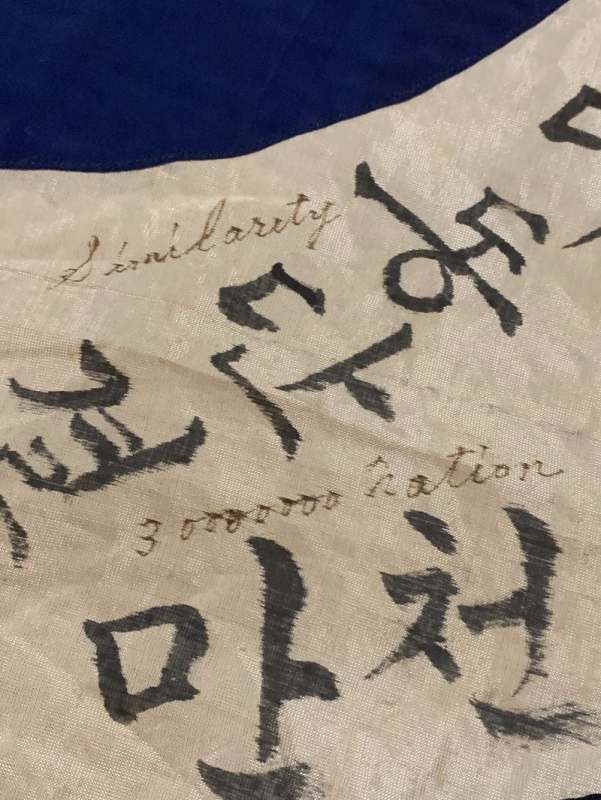 Similarity
동단
3 0000000 nation
천만